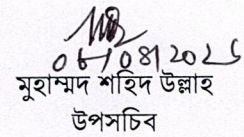 06/08/2025
মুহাম্মদ শহিদ উল্লাহ
উপসচিব